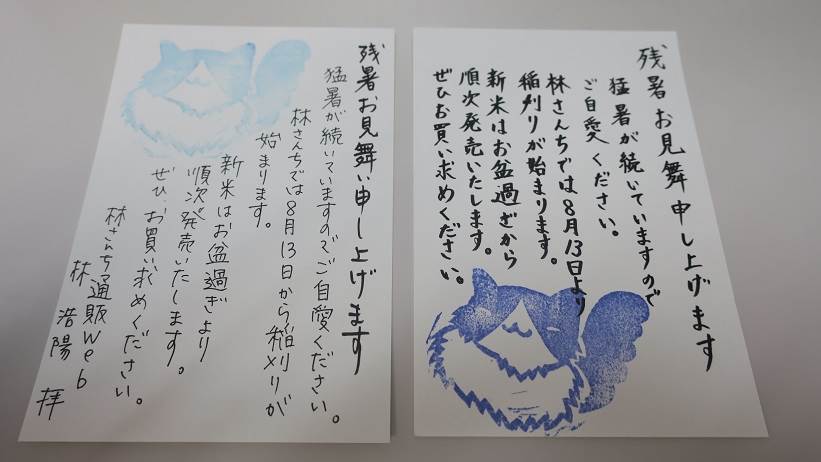 残暑お見舞い申し上げます
猛暑が続いていますのでご自愛ください。
林さんちでは8月13日から稲刈りが
始まります。
新米はお盆過ぎより
順次発売いたします。
ぜひ、お買い求めください。
林さんち通販web
林 浩陽 拝
残暑お見舞申し上げます
猛暑が続いていますので
ご自愛ください。
林さんちでは8月13日より
稲刈りが始まります。
新米はお盆過ぎから
順次発売いたします。
ぜひお買い求めください。